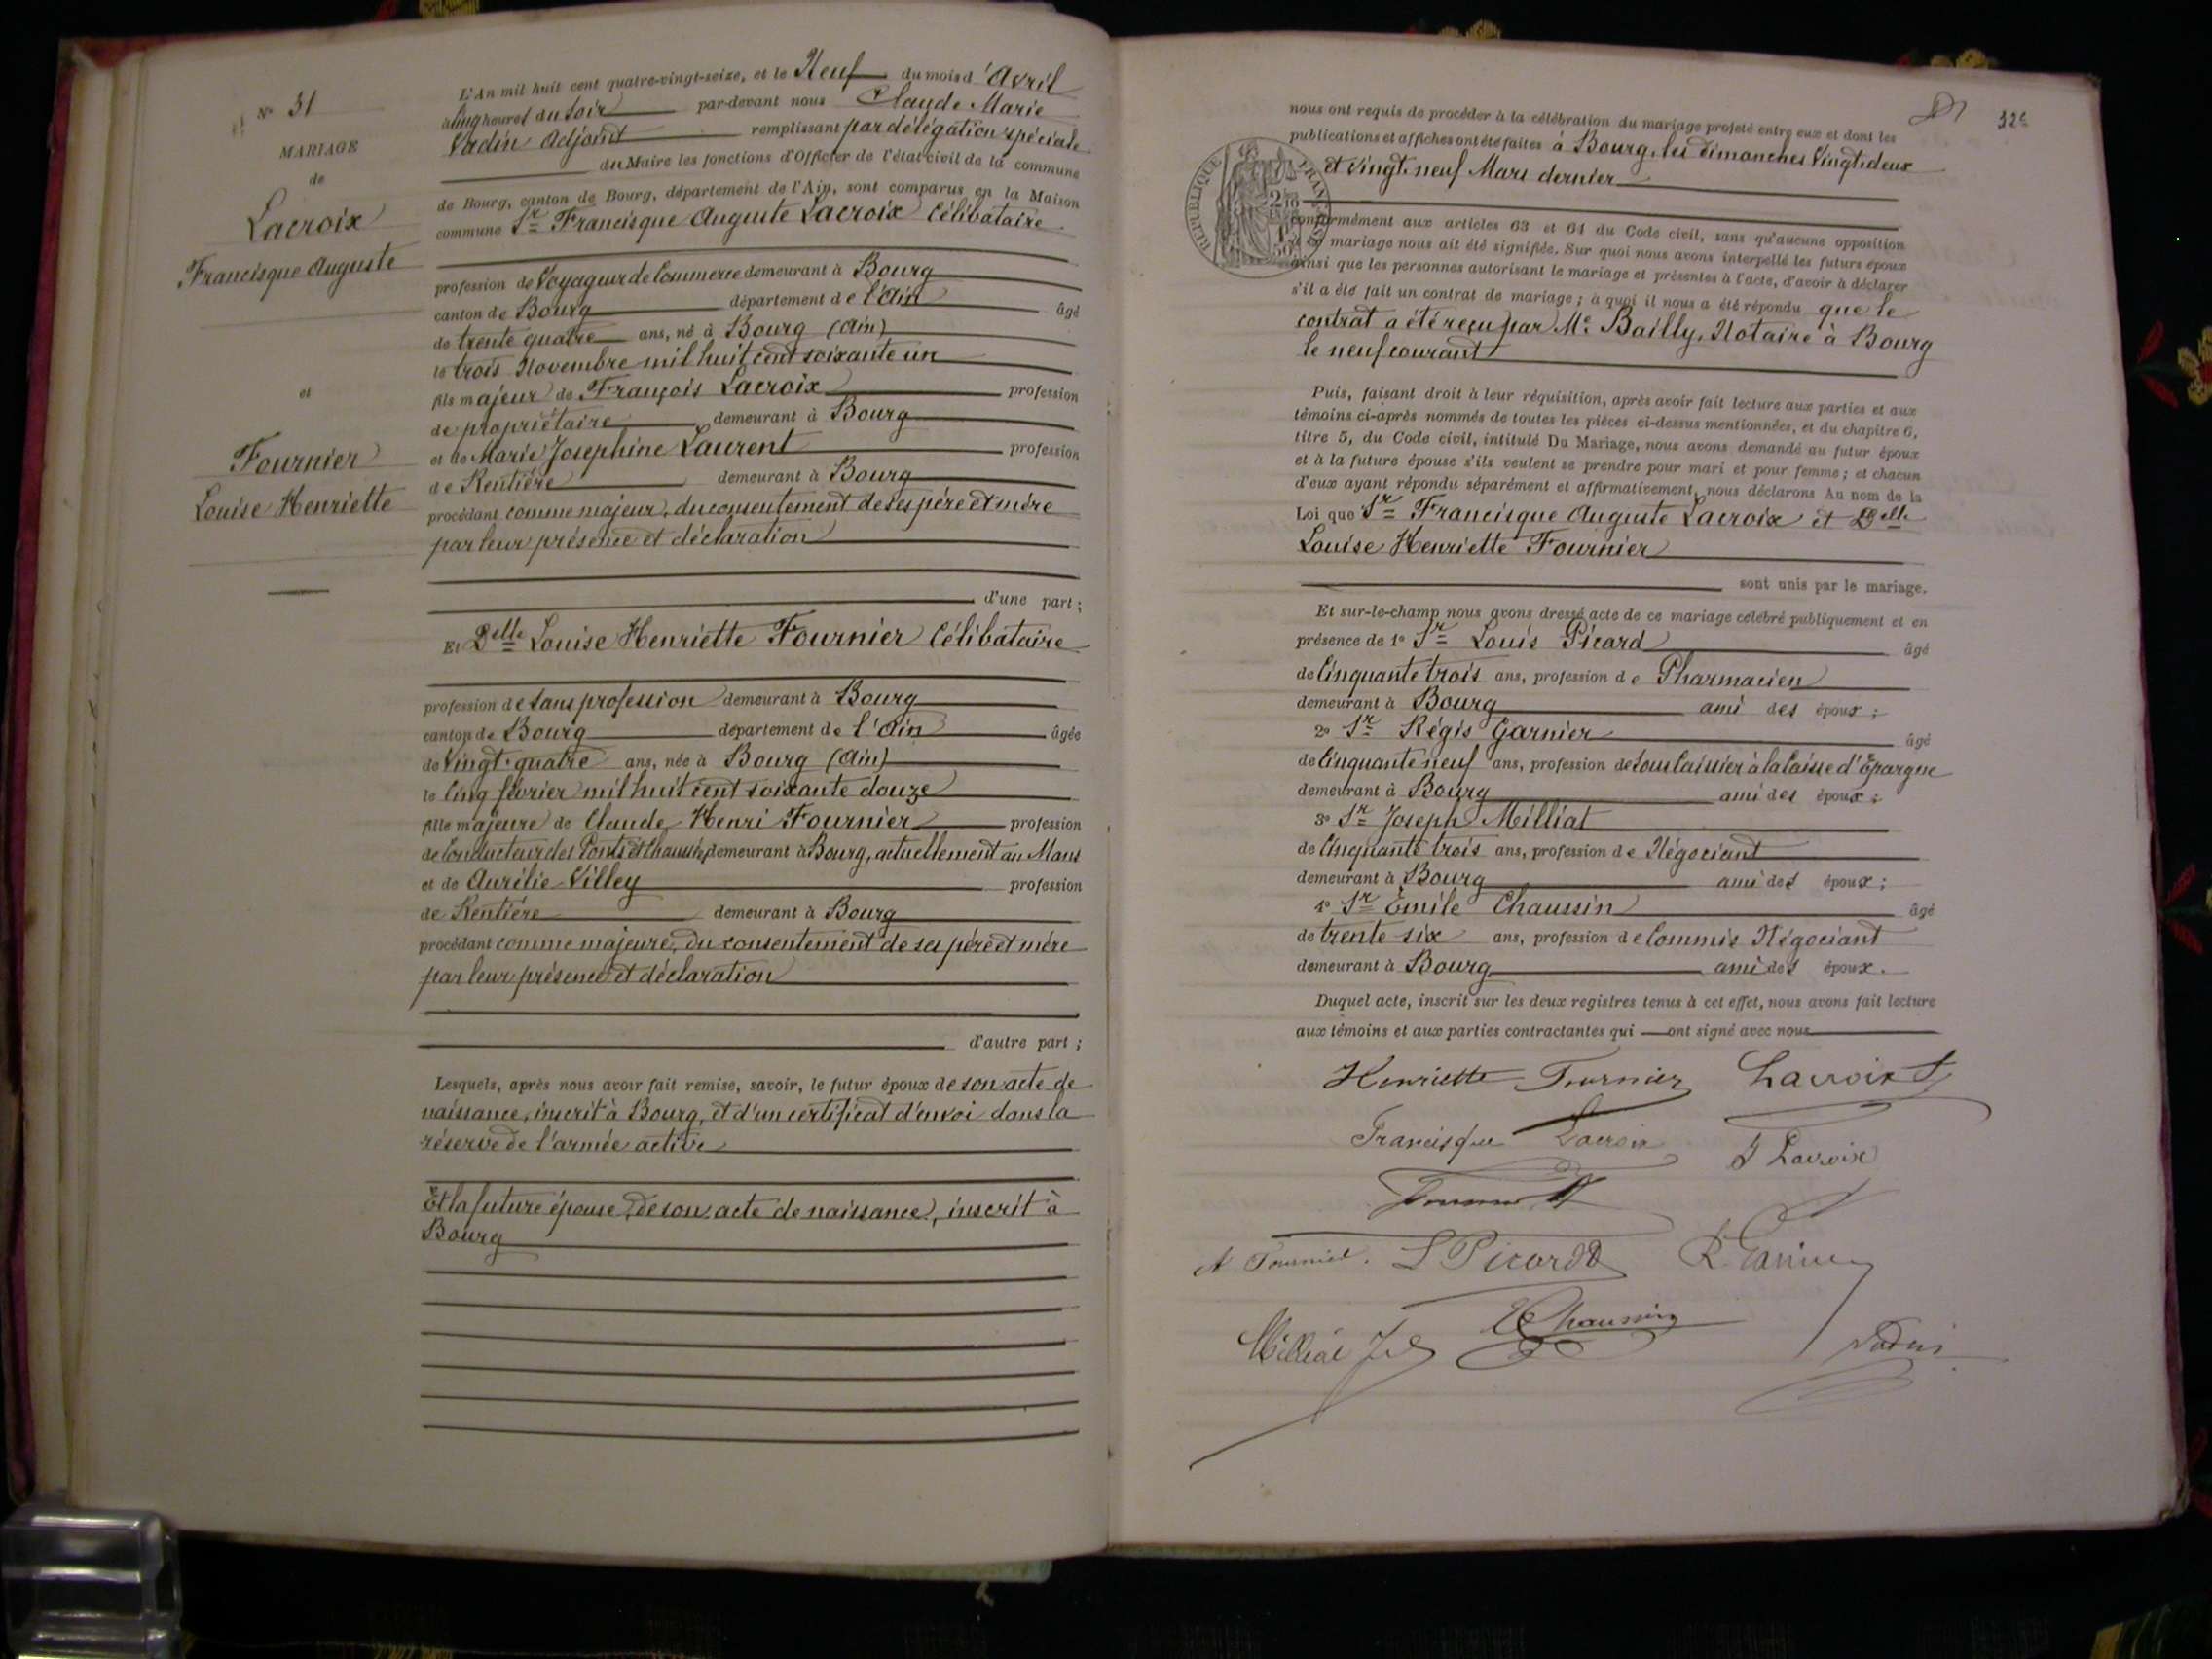 N° 31
MARIAGE
de
Lacroix
Francisque Auguste
et
Fournier
Louise Henriette
L'An mil huit cent quatre-vingt-seize, et le Neuf du mois d'Avril
à Cinq heures du Soir par-devant nous Claude Marie
Vadin Adjoint remplissant par délégation spéciale
du Maire les fonctions d'Officier de l'état civil de la commune
de Bourg, canton de Bourg, département de l'Ain, sont comparus en la Maison
commune Sr Francisque Auguste Lacroix Célibataire
profession de Voyageur de Commerce demeurant à Bourg
canton de Bourg département de l'Ain âgé
de trente quatre ans, né à Bourg (Ain)
le trois Novembre mil huit cent soixante un
fils majeur de François Lacroix profession
de propriétaire demeurant à Bourg
et de Marie Josephine Laurent profession
de Rentière demeurant à Bourg
procédant comme majeur, du consentement de ses père et mère
par leur présence et déclaration
d'une part ;
Et Delle Louise Henriette Fournier Célibataire
profession de sans profession demeurant à Bourg
canton de Bourg département de l'Ain âgée
de Vingt-quatre ans, née à Bourg (Ain)
le Cinq février mil huit cent soixante douze
fille majeure de Claude Henri Fournier profession
de Conducteur des Ponts et Chaussées demeurant à Bourg, actuellement au Mans
et de Aurélie Villey profession
de Rentière demeurant à Bourg
procédant comme majeure, du consentement de ses père et mère
par leur présence et déclaration
d'autre part ;
Lesquels, après nous avoir fait remise, savoir, le futur époux de son acte de
naissance, inscrit à Bourg, et d'un certificat d'envoi dans la
réserve de l'armée active
Et la future épouse, de son acte de naissance, inscrit à
Bourg
32e
nous ont requis de procéder à la célébration du mariage projeté entre eux et dont les
publications et affiches ont été faites à Bourg, les dimanches Vingt-deux
et Vingt-neuf Mars dernier
RÉPUBLIQUE FRANÇAISE
conformément aux articles 63 et 64 du Code civil, sans qu'aucune opposition
à ce mariage nous ait été signifiée. Sur quoi nous avons interpellé les futurs époux
ainsi que les personnes autorisant le mariage et présentes à l'acte, d'avoir à déclarer
s'il a été fait un contrat de mariage ; à quoi il nous a été répondu que le
contrat a été reçu par Me Bailly, Notaire à Bourg
le neuf courant
Puis, faisant droit à leur réquisition, après avoir fait lecture aux parties et aux
témoins ci-après nommés de toutes les pièces ci-dessus mentionnées, et du chapitre 6,
titre 5, du Code civil, intitulé Du Mariage, nous avons demandé au futur époux
et à la future épouse s'ils veulent se prendre pour mari et pour femme ; et chacun
d'eux ayant répondu séparément et affirmativement, nous déclarons Au nom de la
Loi que Sr Francisque Auguste Lacroix et Delle
Louise Henriette Fournier
sont unis par le mariage.
Et sur-le-champ nous avons dressé acte de ce mariage célébré publiquement et en
présence de 1° Sr Louis Picard âgé
de Cinquante trois ans, profession de Pharmacien
demeurant à Bourg ami des époux ;
2° Sr Régis Garnier âgé
de Cinquante neuf ans, profession de Sous Caissier à la Caisse d'Epargne
demeurant à Bourg ami des époux ;
3° Sr Joseph Milliat
de Cinquante trois ans, profession de Négociant
demeurant à Bourg ami des époux ;
4° Sr Emile Chaussin âgé
de trente six ans, profession de Commis Négociant
demeurant à Bourg ami des époux.
Duquel acte, inscrit sur les deux registres tenus à cet effet, nous avons fait lecture
aux témoins et aux parties contractantes qui ont signé avec nous
Henriette Fournier Lacroix
Francisque Lacroix J Lacroix
Fournier
A Fournier. L Picard R. Garnier
Milliat Jh E Chaussin Vadin